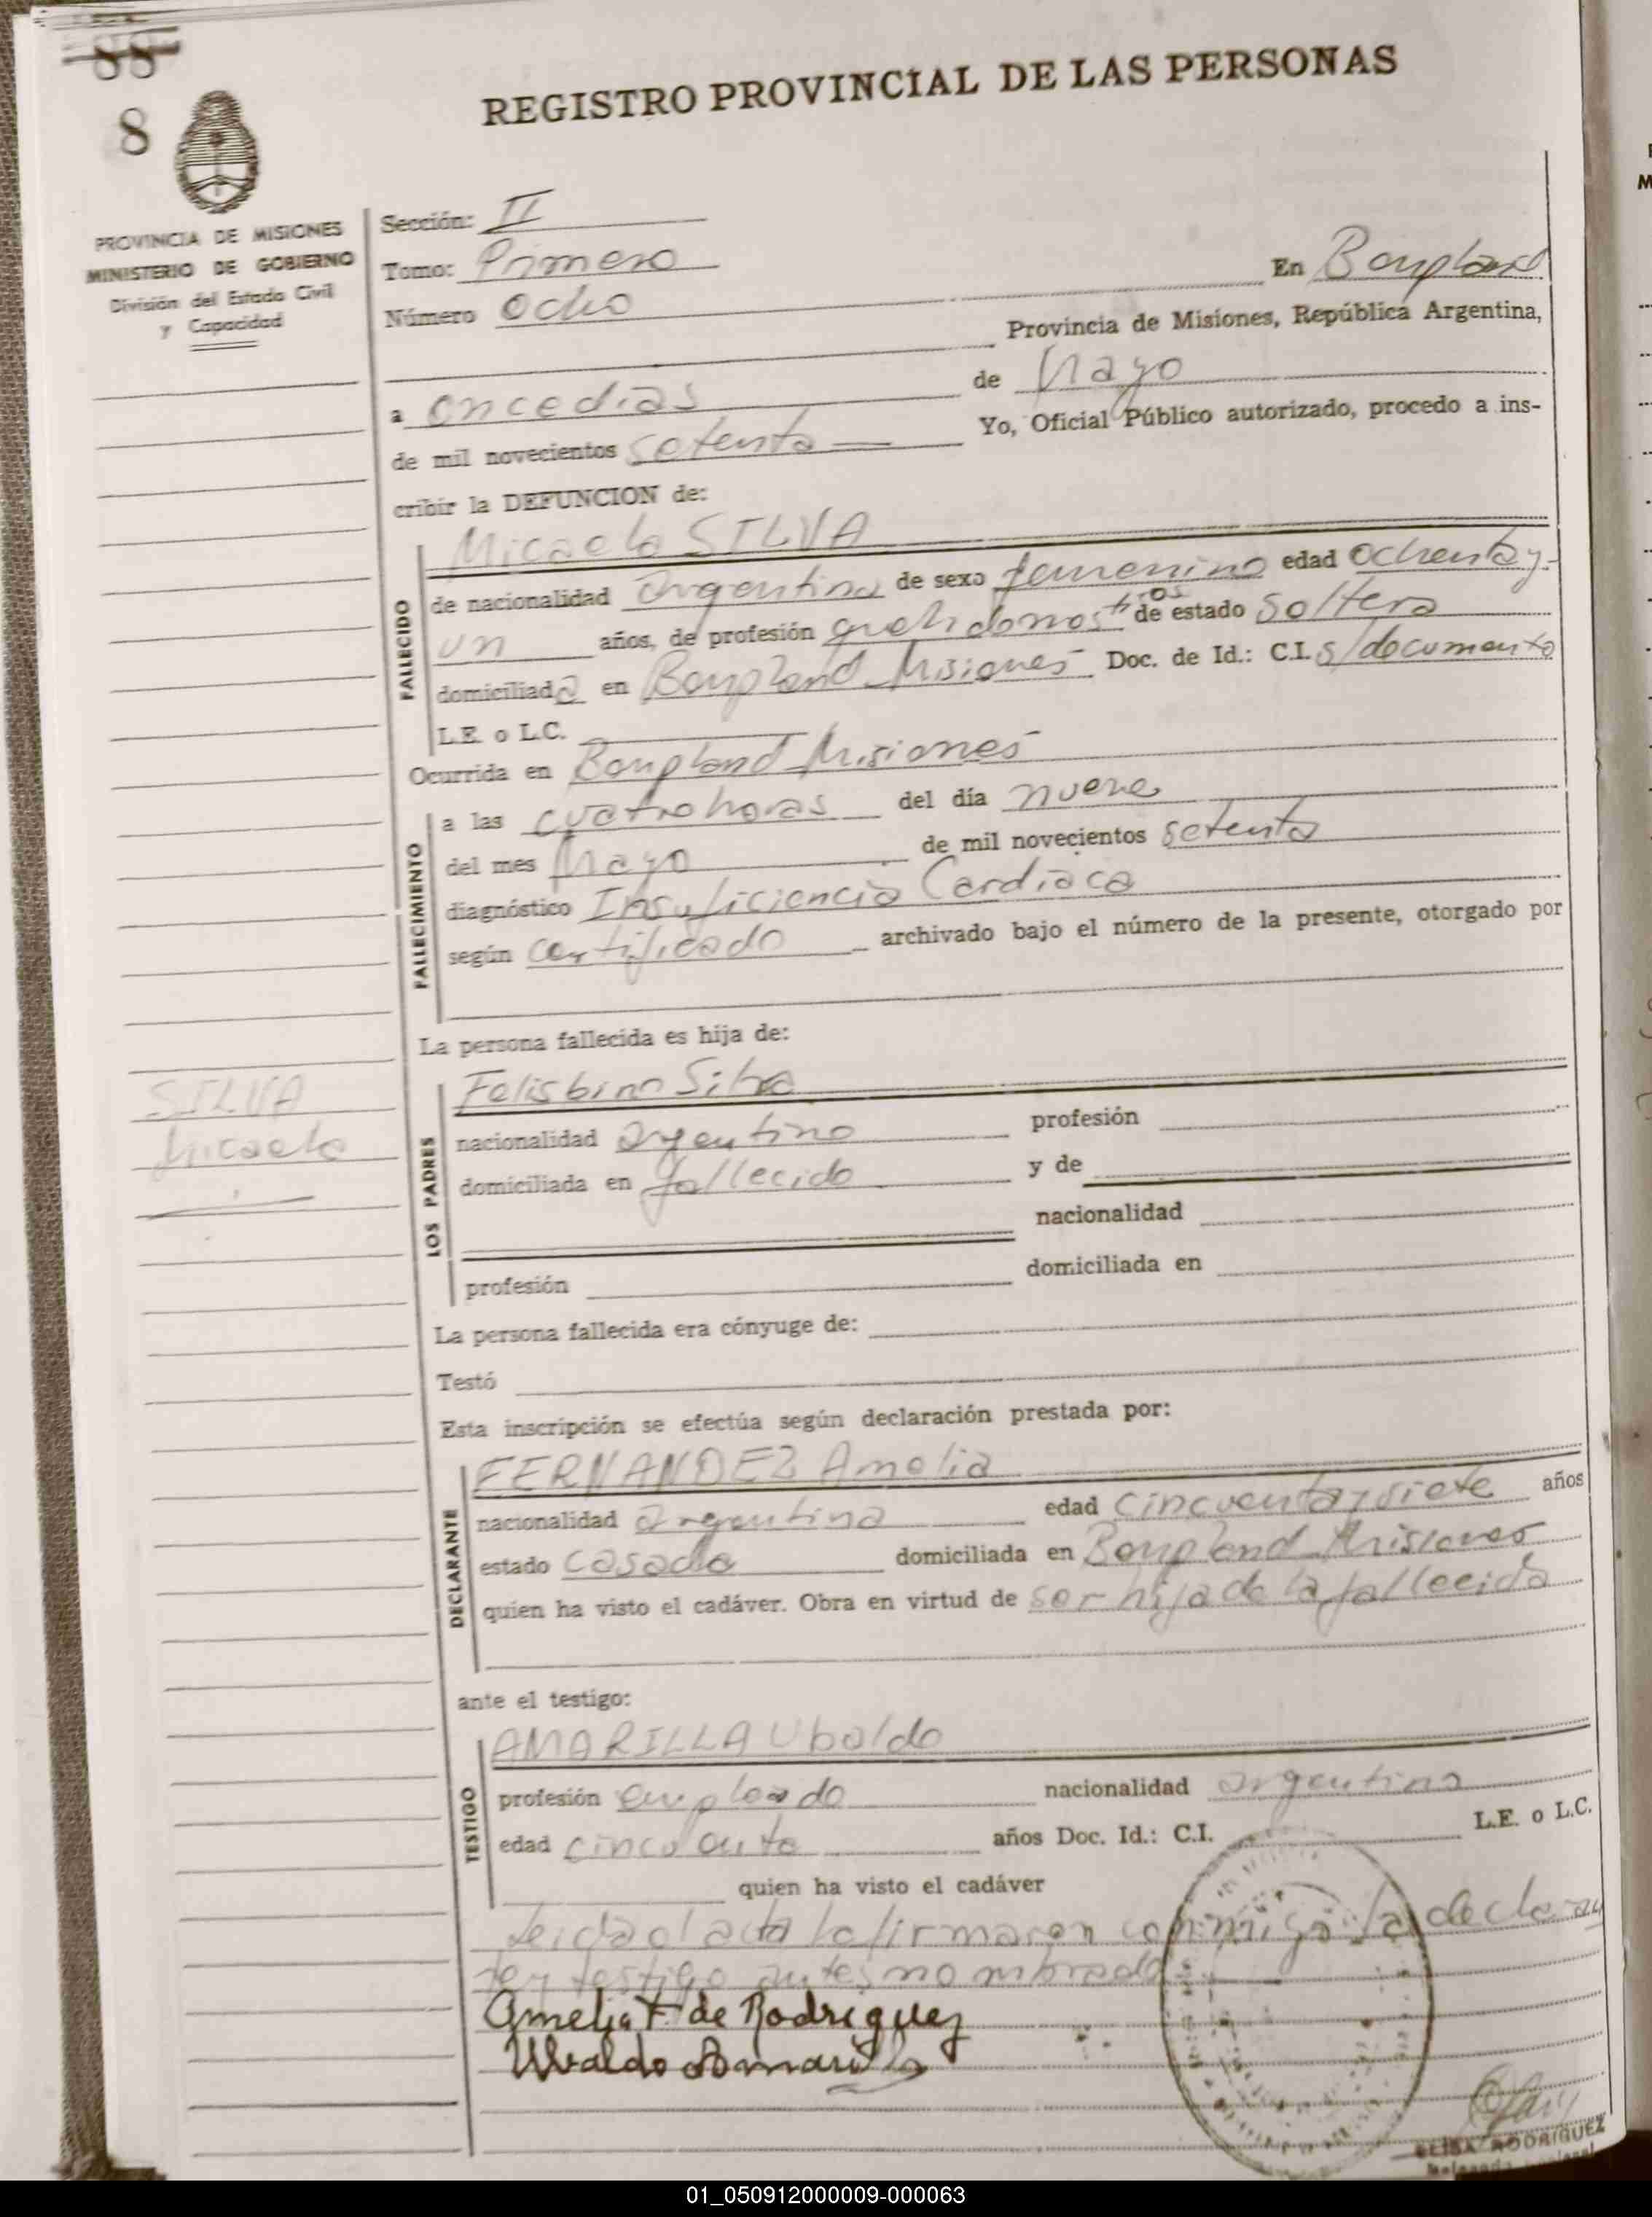 88
8
REGISTRO PROVINCIAL DE LAS PERSONAS
PROVINCIA DE MISIONES
MINISTERIO DE GOBIERNO
División del Estado Civil
y Capacidad
Sección: II
Tomo: Primero
Número Ocho
En Bonpland
Provincia de Misiones, República Argentina,
a once dias de Mayo
de mil novecientos setenta Yo, Oficial Público autorizado, procedo a ins-
cribir la DEFUNCION de:
FALLECIDO
Micaela SILVA
de nacionalidad argentina de sexo femenino edad ochenta y
un años, de profesión de estado soltera
domiciliada en Bonpland Misiones Doc. de Id.: C.I. s/documento
L.E. o L.C.
Ocurrida en Bonpland Misiones
FALLECIMIENTO
a las cuatro horas del día nueve
del mes Mayo de mil novecientos setenta
diagnóstico Insuficiencia Cardiaca
según certificado archivado bajo el número de la presente, otorgado por
La persona fallecida es hija de:
SILVA
Micaela
LOS PADRES
Felisbino Silva
nacionalidad argentino profesión
domiciliada en fallecido y de
nacionalidad
profesión domiciliada en
La persona fallecida era cónyuge de:
Testó
Esta inscripción se efectúa según declaración prestada por:
DECLARANTE
FERNANDEZ Amelia
nacionalidad argentina edad cincuenta y siete años
estado casada domiciliada en Bonpland Misiones
quien ha visto el cadáver. Obra en virtud de ser hija de la fallecida
ante el testigo:
TESTIGO
AMARILLA Ubaldo
profesión empleado nacionalidad argentina
edad cincuenta años Doc. Id.: C.I. L.E. o L.C.
quien ha visto el cadáver
leida el acta la firmaron conmigo la declaran
te y testigo antes nombrado
Amelia F. de Rodriguez
Ubaldo Amarilla
ELISA RODRIGUEZ
01_050912000009-000063